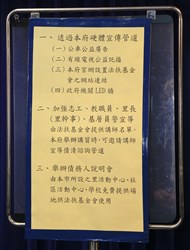 一、透過本府硬體宣傳管道
(一)公車公益廣告
(二)有線電視公益託播
(三)本府官網設置法扶基金
會之網站連結
(四)政府機關LED牆
二、加強志工、教職員、里長
(里幹事)、基層員警宣導
由法扶基金會提供講師名單,
本府舉辦講習時,可邀請講師
宣導債清諮詢管道
三、舉辦債務人說明會
由本市所設之里活動中心、社
區活動中心、學校免費提供場
地供法扶基金會使用